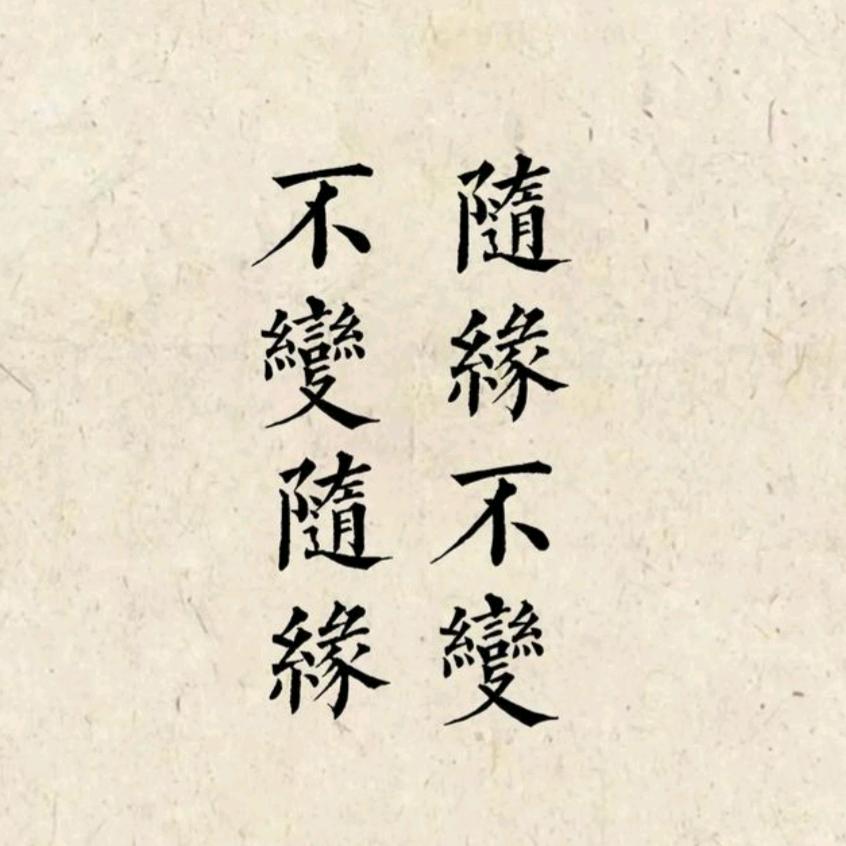 隨緣不變
不變隨緣